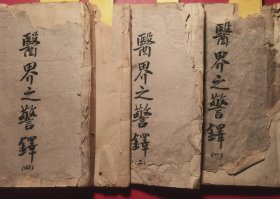 醫界之警鐸(一)
醫界之警鐸(二)
醫界之警鐸(四)